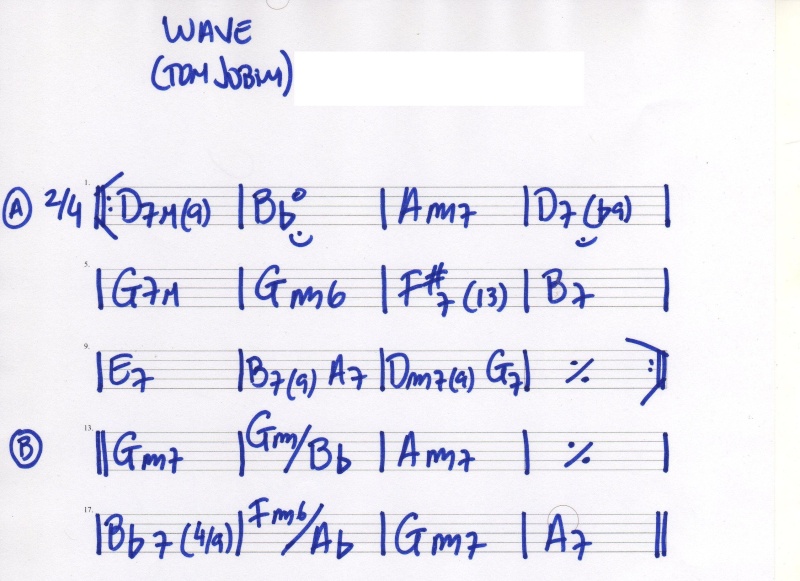 WAVE
(TOM JOBIM)
A 2/4 1. ‖: D7M(9) | Bb° | Am7 | D7(b9) |
5. | G7M | Gm6 | F#7(13) | B7 |
9. | E7 | B7(9) A7 | Dm7(9) G7 | ٪ :‖
B 13. ‖ Gm7 | Gm/Bb | Am7 | ٪ |
17. | Bb7(4/9) | Fm6/Ab | Gm7 | A7 ‖